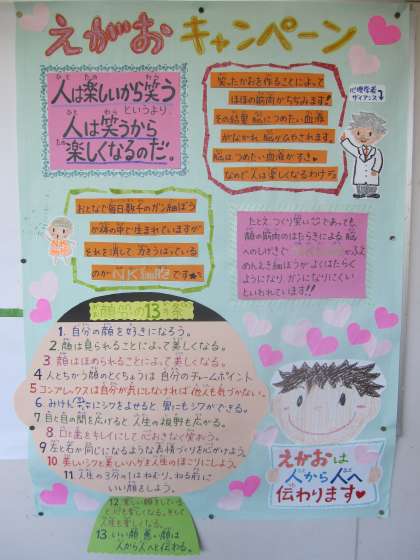 えがおキャンペーン
人は楽しいから笑う
ひと たの わら
というより、
人は笑うから
楽しくなるのだ。
笑ったかおを作ることによって
ほほの筋肉がちぢみます!
その結果 脳につめたい血液
がながれ 脳がひやされます。
脳はつめたい血液がすき
なので 人は楽しくなるわけデス
心理学者
ザイアンス
おとなで毎日数千のガン細ぼう
が体の中で生まれていますが
それを消して 力をうばっている
のが NK細胞です
たとえ つくり笑いであっても、
顔の筋肉のはたらきによる 脳
へのしげきで
めんえき細ぼうがよくはたらく
ようになり ガンになりにくい
といわれています!!
顔笑の13ヵ条
1. 自分の顔を好きになろう。
2. 顔は見られることによって美しくなる。
3 顔はほめられることによって美しくなる。
4 人とちがう顔のとくちょうは 自分のチャームポイント
5 コンプレックスは自分が気にしなければ 他人も気がつかない。
6 みけんにシワをよせると 胃にもシワができる。
7 目と目の間を広げると 人生の視野も広がる。
8 口と歯をキレイにして 心おきなく笑おう。
9 左と右が同じになるような表情づくりを心がけよう。
10 美しいシワと美しいハゲを人生のほこりにしよう。
11 人生の3分の1はねむり。ねる前に
いい顔をしよう。
12 楽しい顔をしている
と心も楽しくなる。きっと
人生も楽しくなる。
13 いい顔 悪い顔は
人から人へと伝わる。
えがおは
人から人へ
伝わります